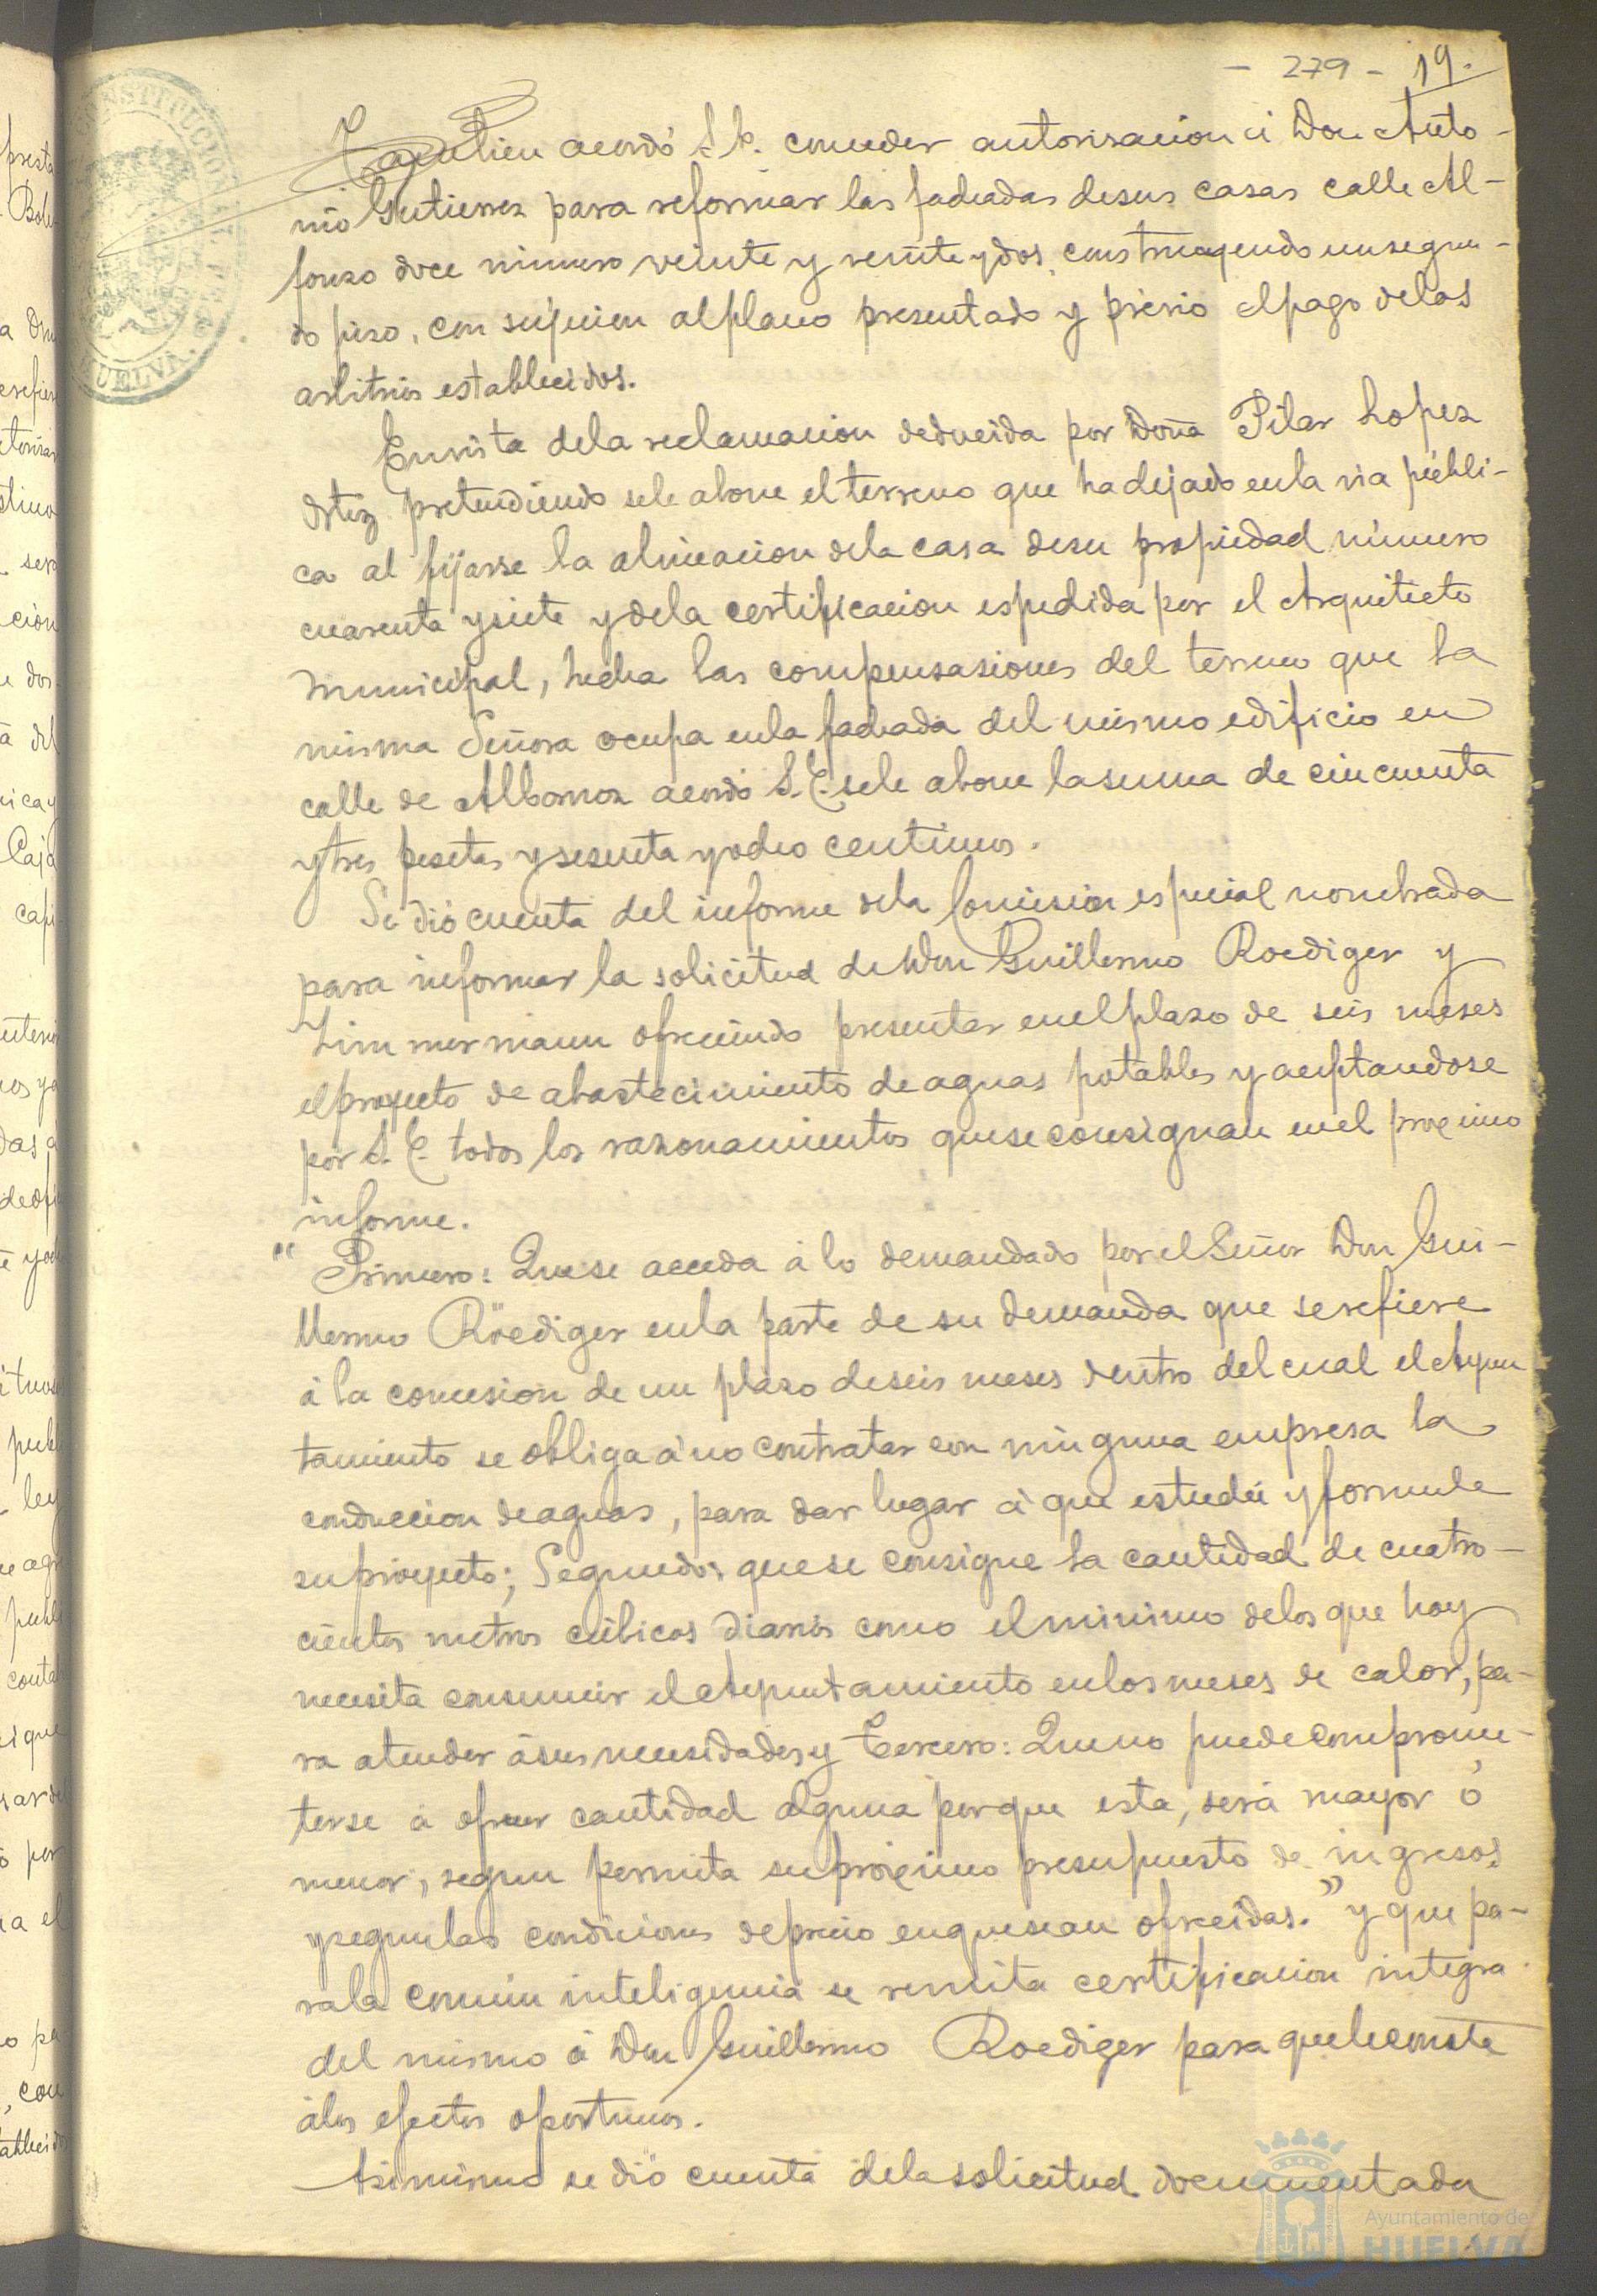 - 279 - 19.
CONSTITUCIONAL DE
HUELVA.
Tambien acordó S.E. conceder autorisacion á Don Anto-
nio Gutierrez para reformar las fachadas desus casas calle Al-
fonso doce número veinte y veinte y dos, construyendo unsegun-
do piso, con sujecion alplano presentado y prévio elpago delos
arbitrios establecidos.
Envista dela reclamacion deducida por Doña Pilar Lopez
Ortiz pretendiendo sele abone el terreno que hadejado enla via públi-
ca al fijarse la alineacion dela casa desu propiedad número
cuarenta ysiete ydela certificacion espedida por el Arquitecto
municipal, hecha las compensasiones del terreno que la
misma Señora ocupa enla fachada del mismo edificio en
calle de Albornoz acordó S.E. sele abone lasuma de cincuenta
ytres pesetas ysesenta yocho centimos.
Se dió cuenta del informe dela Comision especial nombrada
para informar la solicitud de Don Guillermo Roediger y
Zimmermann ofreciendo presentar enelplazo de seis meses
elproyecto de abastecimiento deaguas potables y aceptandose
por S.E. todos los razonamientos queseconsignan enel proximo
informe.
" Primero: Quese acceda á lo demandado por elSeñor Don Gui-
llermo Röediger enla parte de su demanda que serefiere
á la concesion de un plazo deseis meses dentro del cual elAyun
tamiento se obliga á no contratar con ninguna empresa la
conduccion deaguas, para dar lugar á que estudie yformule
suproyecto; Segundo: quese consigne la cantidad de cuatro-
cientos metros cúbicos diarios como elminimo delos que hoy
necesita consumir elAyuntamiento enlosmeses de calor, pa-
ra atender ásus necesidades y Tercero: Queno puedecomprome-
terse á ofrecer cantidad alguna porque esta, será mayor ó
menor, segun permita suproximo presupuesto de ingresos
ysegunlas condiciones deprecio enquesean ofrecidas." y que pa-
rala comun inteligencia se remita certificacion integra
del mismo á Don Guillermo Roediger para queleconste
álos efectos oportunos.
Asimismo se dió cuenta delasolicitud documentada
Ayuntamiento de
HUELVA